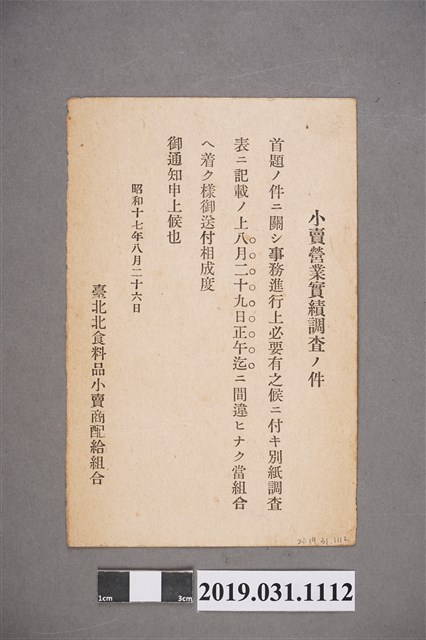 小賣營業實績調査ノ件
首題ノ件ニ關シ事務進行上必要有之候ニ付キ別紙調査
表ニ記載ノ上八月二十九日正午迄ニ間違ヒナク當組合
ヘ着ク樣御送付相成度
御通知申上候也
昭和十七年八月二十六日
臺北北食料品小賣商配給組合
2019.31.1112
1cm
3cm
2019.031.1112